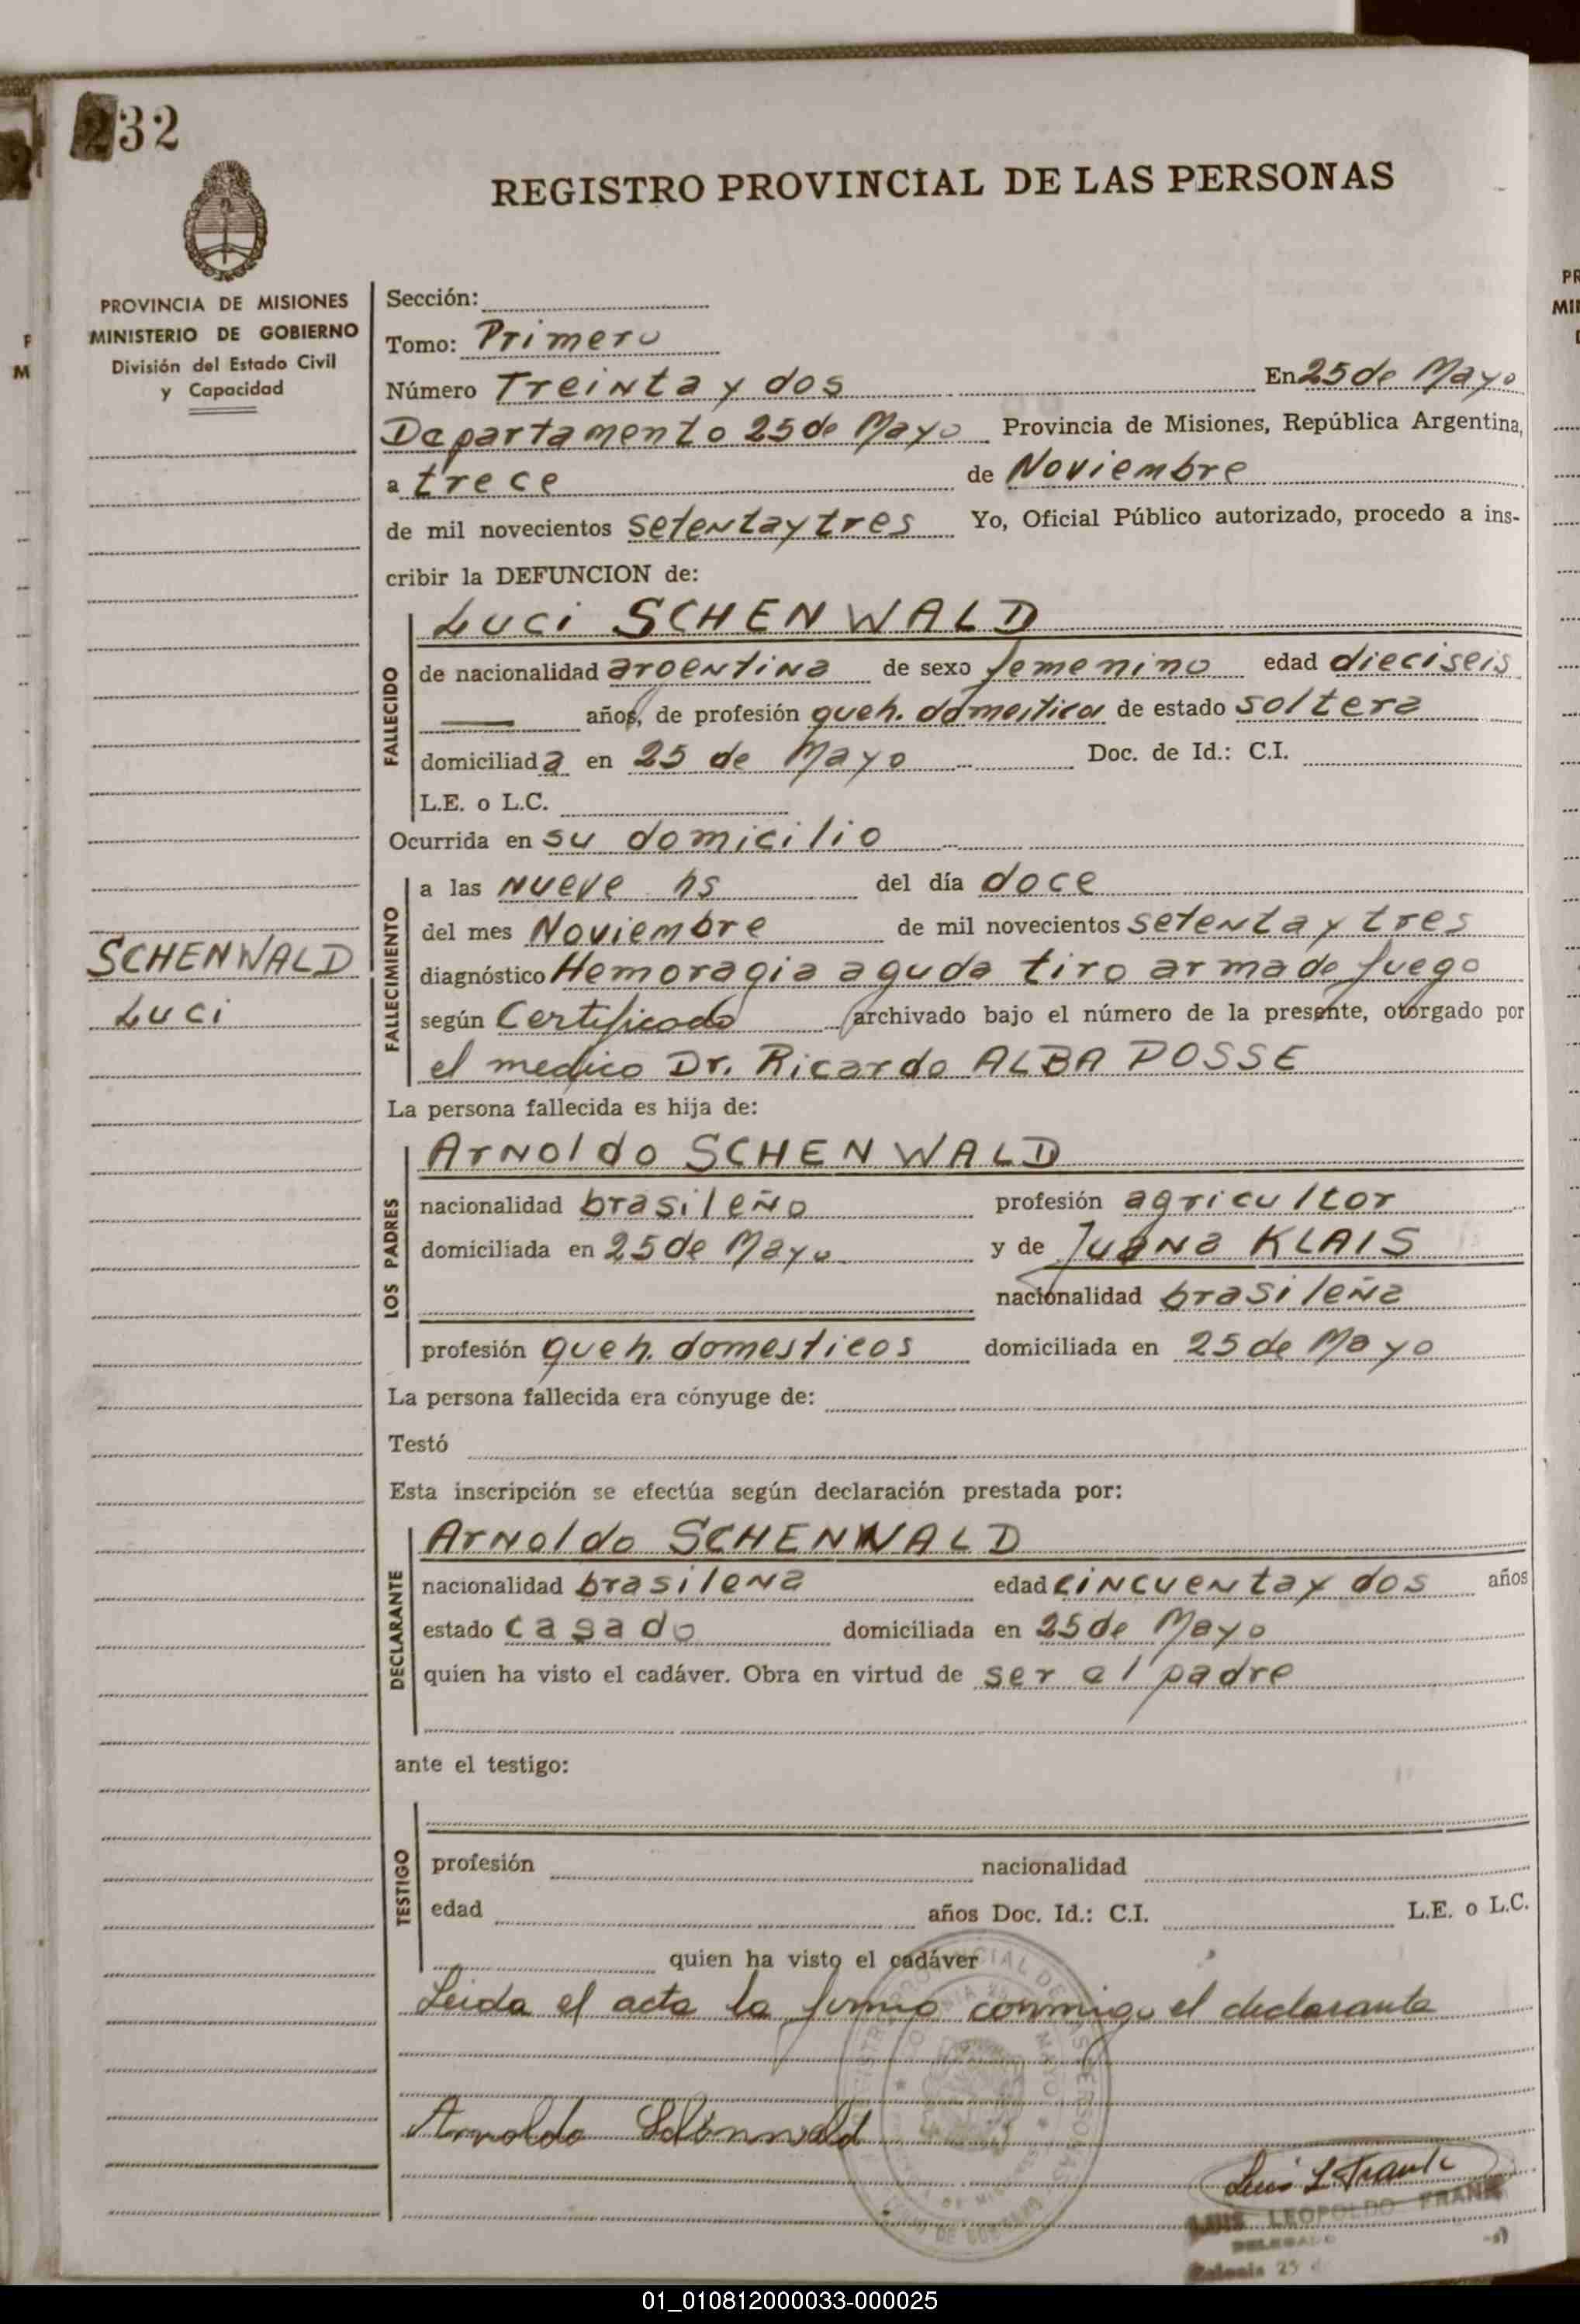 232
REGISTRO PROVINCIAL DE LAS PERSONAS
PROVINCIA DE MISIONES
MINISTERIO DE GOBIERNO
División del Estado Civil
y Capacidad
Sección:
Tomo: Primero
Número Treinta y dos En 25 de Mayo
Departamento 25 de Mayo Provincia de Misiones, República Argentina,
a trece de Noviembre
de mil novecientos setenta y tres Yo, Oficial Público autorizado, procedo a ins-
cribir la DEFUNCION de:
Luci SCHENWALD
FALLECIDO
de nacionalidad argentina de sexo femenino edad dieciseis
años, de profesión queh. domesticos de estado soltera
domiciliada en 25 de Mayo Doc. de Id.: C.I.
L.E. o L.C.
Ocurrida en su domicilio
FALLECIMIENTO
a las nueve hs del día doce
del mes Noviembre de mil novecientos setenta y tres
SCHENWALD
Luci
diagnóstico Hemoragia aguda tiro arma de fuego
según Certificado archivado bajo el número de la presente, otorgado por
el medico Dr. Ricardo ALBA POSSE
La persona fallecida es hija de:
LOS PADRES
Arnoldo SCHENWALD
nacionalidad brasileño profesión agricultor
domiciliada en 25 de Mayo y de Juana KLAIS
nacionalidad brasileña
profesión queh. domesticos domiciliada en 25 de Mayo
La persona fallecida era cónyuge de:
Testó
Esta inscripción se efectúa según declaración prestada por:
DECLARANTE
Arnoldo SCHENWALD
nacionalidad brasilena edad cincuenta y dos años
estado casado domiciliada en 25 de Mayo
quien ha visto el cadáver. Obra en virtud de ser el padre
ante el testigo:
TESTIGO
profesión nacionalidad
edad años Doc. Id.: C.I. L.E. o L.C.
quien ha visto el cadáver
Leida el acta la firma conmigo el declarante
Arnoldo Schönwald
Luis L Frank
LUIS LEOPOLDO FRANK
DELEGADO
Colonia 25 d
01_010812000033-000025